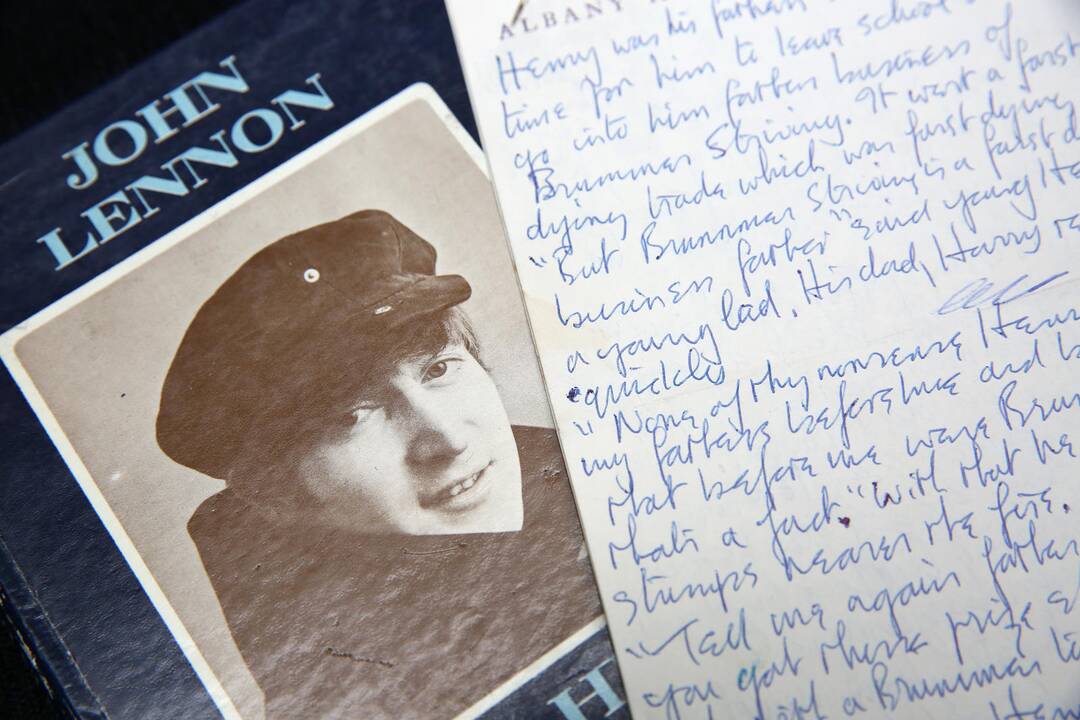 JOHN
LENNON
H
ALBANY
Henry was his fathers
time for him to leave school
go into him fathers business of
Brummer Striving. It wort a farst
dying trade which was farst dying
"But Brummer Striving is a farst d
business farther" said young He
a young lad. His dad, Harry re
quickly
"None of thy nonsense Henr
my fathers before me and
that before me were Brum
thats a fact." With that he
stumps nearer the fire.
"Tell me again father
you got these prize
a Brummer